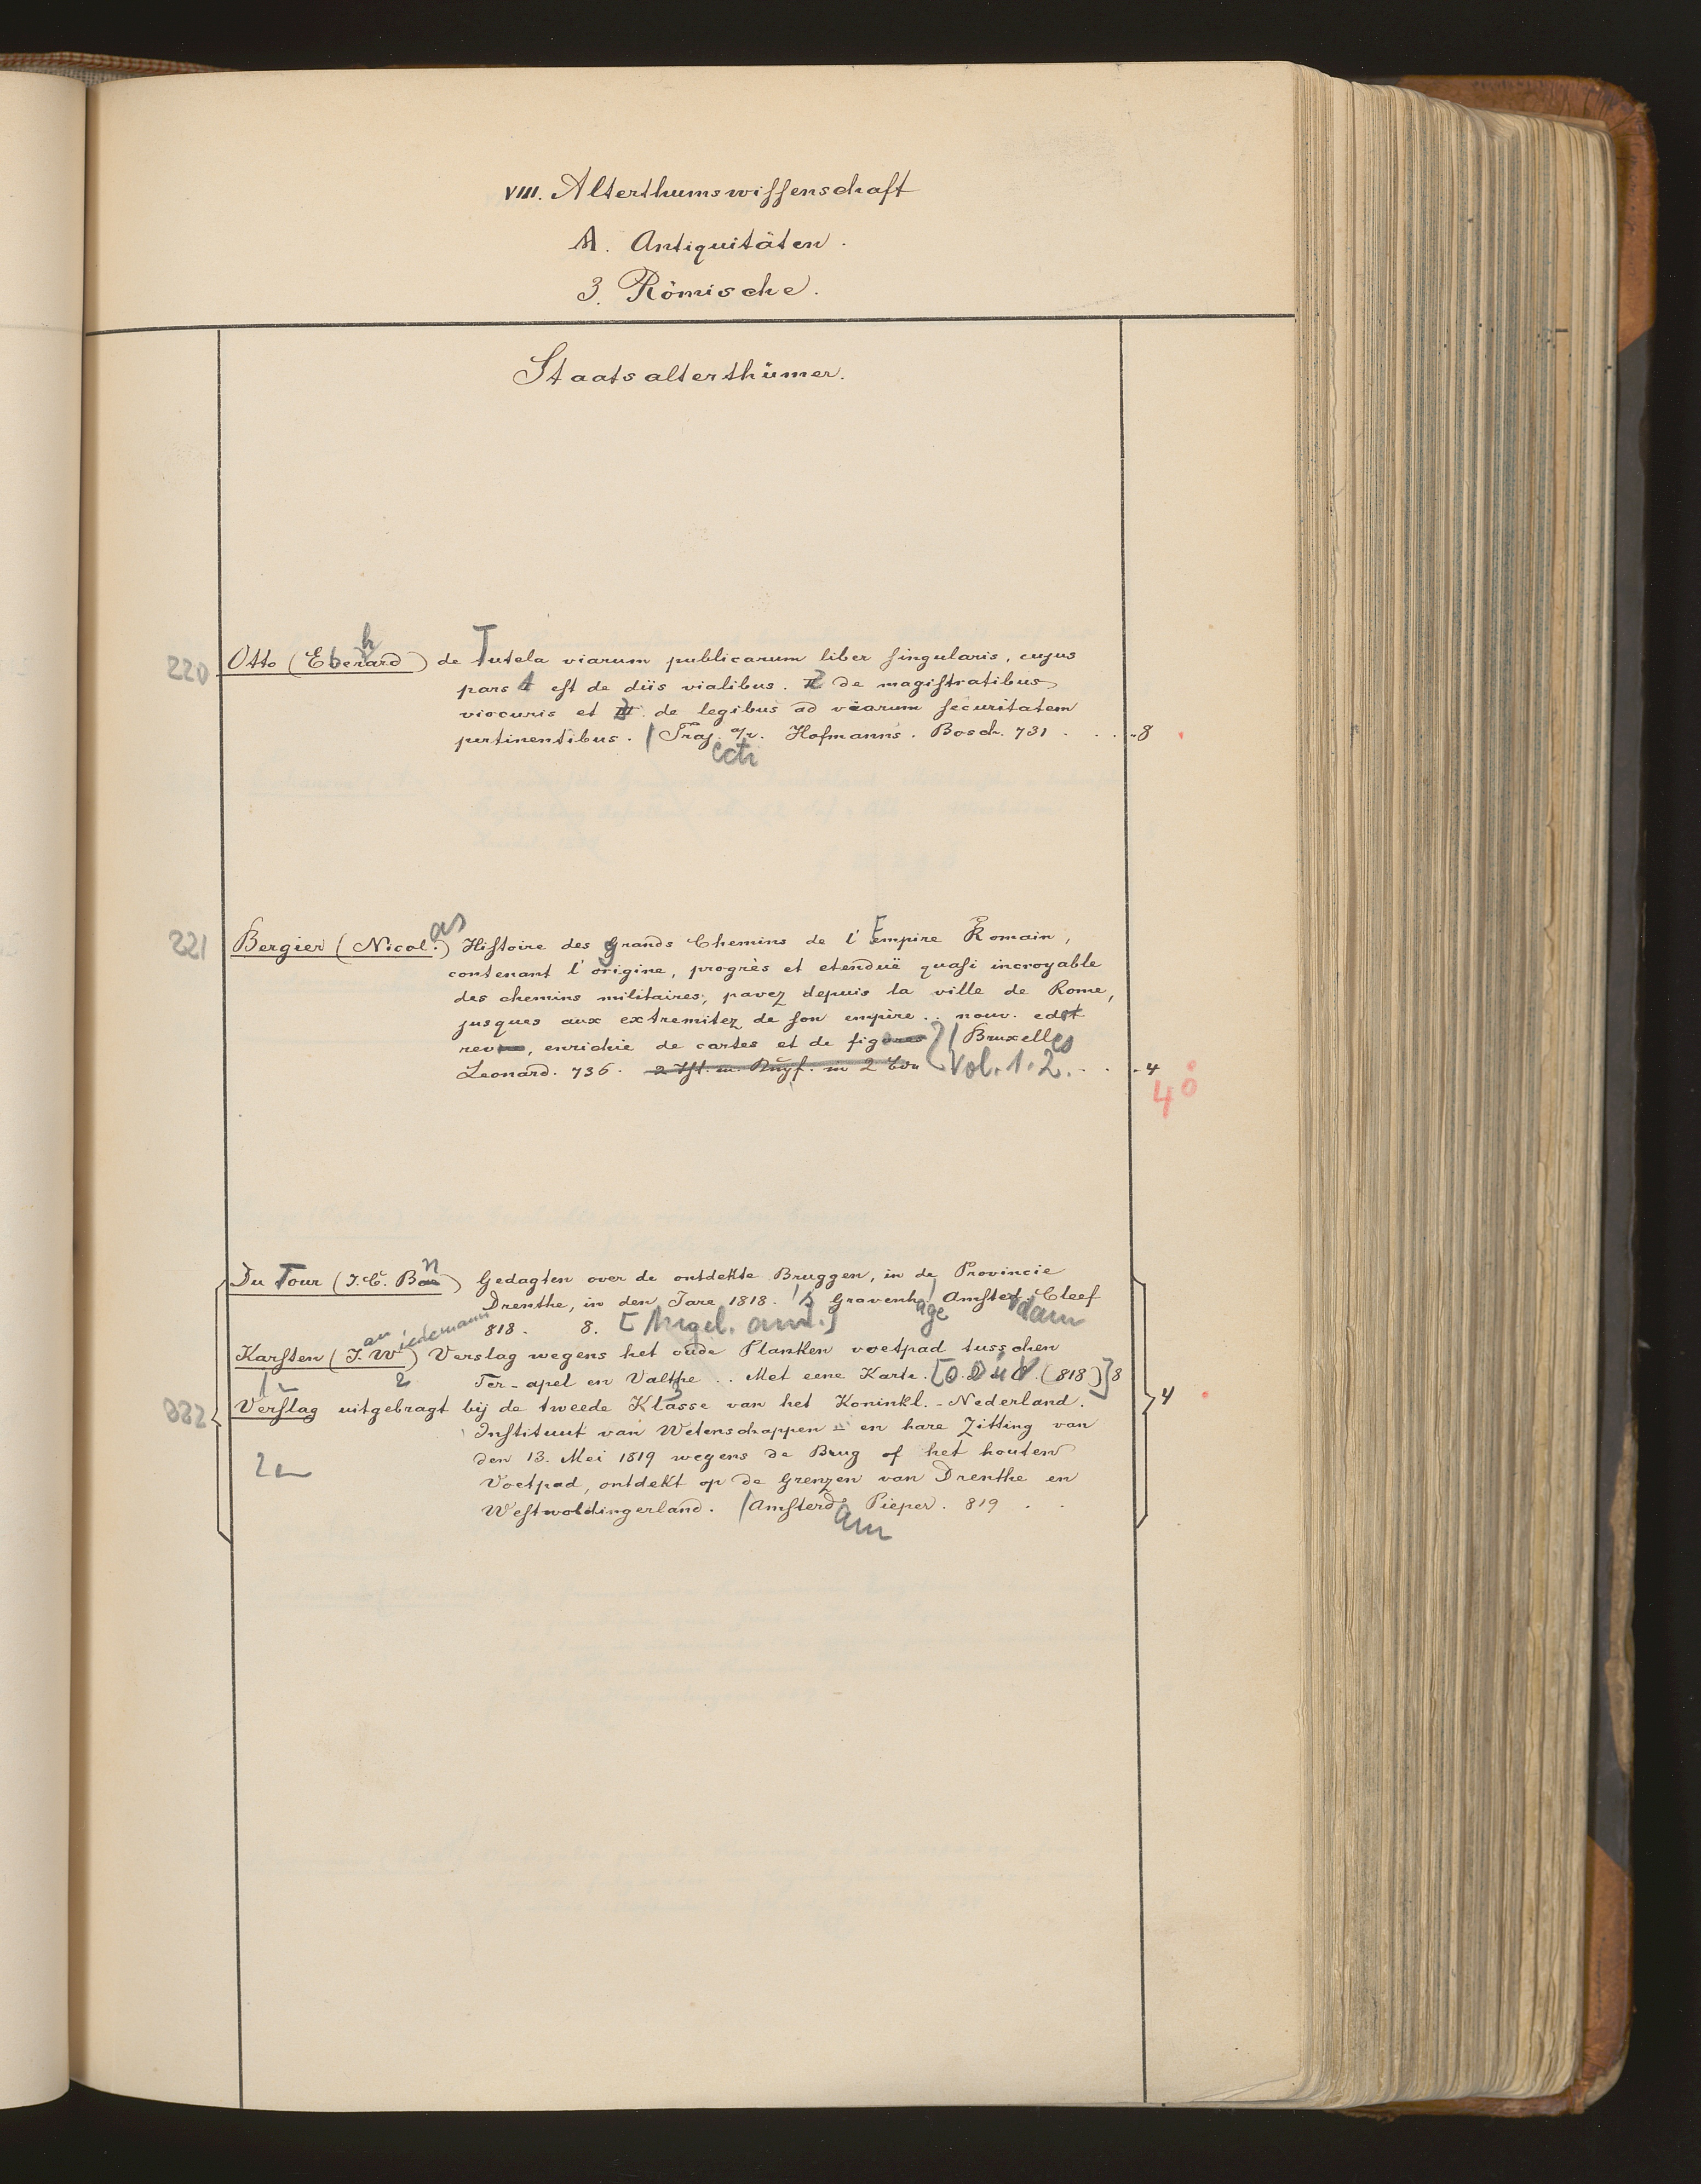 VIII. Alterthumswissenschaft
A. Antiquitäten.
3. Römische.
Staatsalterthümer.
220 Otto (Eberhard) de Tutela viarum publicarum liber singularis, cujus
pars 1 est de diis vialibus. 2 de magistratibus
viocuris et 3 de legibus ad viarum securitatem
pertinentibus. | Traj. a/r. Hofmanns. Bosch. 731 . . . 8
ecti
221 Bergier (Nicolas) Histoire des grands Chemins de l'Empire Romain,
contenant l'origine, progrès et etenduë quasi incroyable
des chemins militaires, pavez depuis la ville de Rome,
jusques aux extremitez de son empire .. nouv. edit
rev, enrichie de cartes et de figures | Bruxelles
Leonard. 736. Vol. 1. 2. . . 4
4°
Du Tour (J. C. Bn) Gedagten over de ontdekte Bruggen, in de Provincie
Drenthe, in den Jare 1818. | 's Gravenhage | Amsterdam Cleef
818. 8. [Angeb. and.]
Karsten (J. W) Verslag wegens het oude Planken voetpad tusschen
an iedemann
Ter-apel en Valthe .. Met eene Karte. [O. O u V. (818)] 8
222 Verslag uitgebragt bij de tweede Klasse van het Koninkl.-Nederland.
Instituut van Wetenschappen en hare Zitting van
den 13. Mei 1819 wegens de Brug of het houten
Voetpad, ontdekt op de Grenzen van Drenthe en
Westwoldingerland. | Amsterd. Pieper. 819 . . 4
am